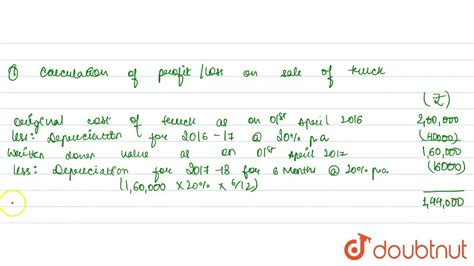 ① Calculation of profit/loss on sale of truck
(₹)
Original cost of truck as on 01st April 2016 2,00,000
Less: Depreciation for 2016-17 @ 20% p.a (40000)
Written down value as on 01st April 2017 1,60,000
Less: Depreciation for 2017-18 for 6 Months @ 20% p.a. (16000)
(1,60,000 x 20% x 6/12)
1,44,000
doubtnut